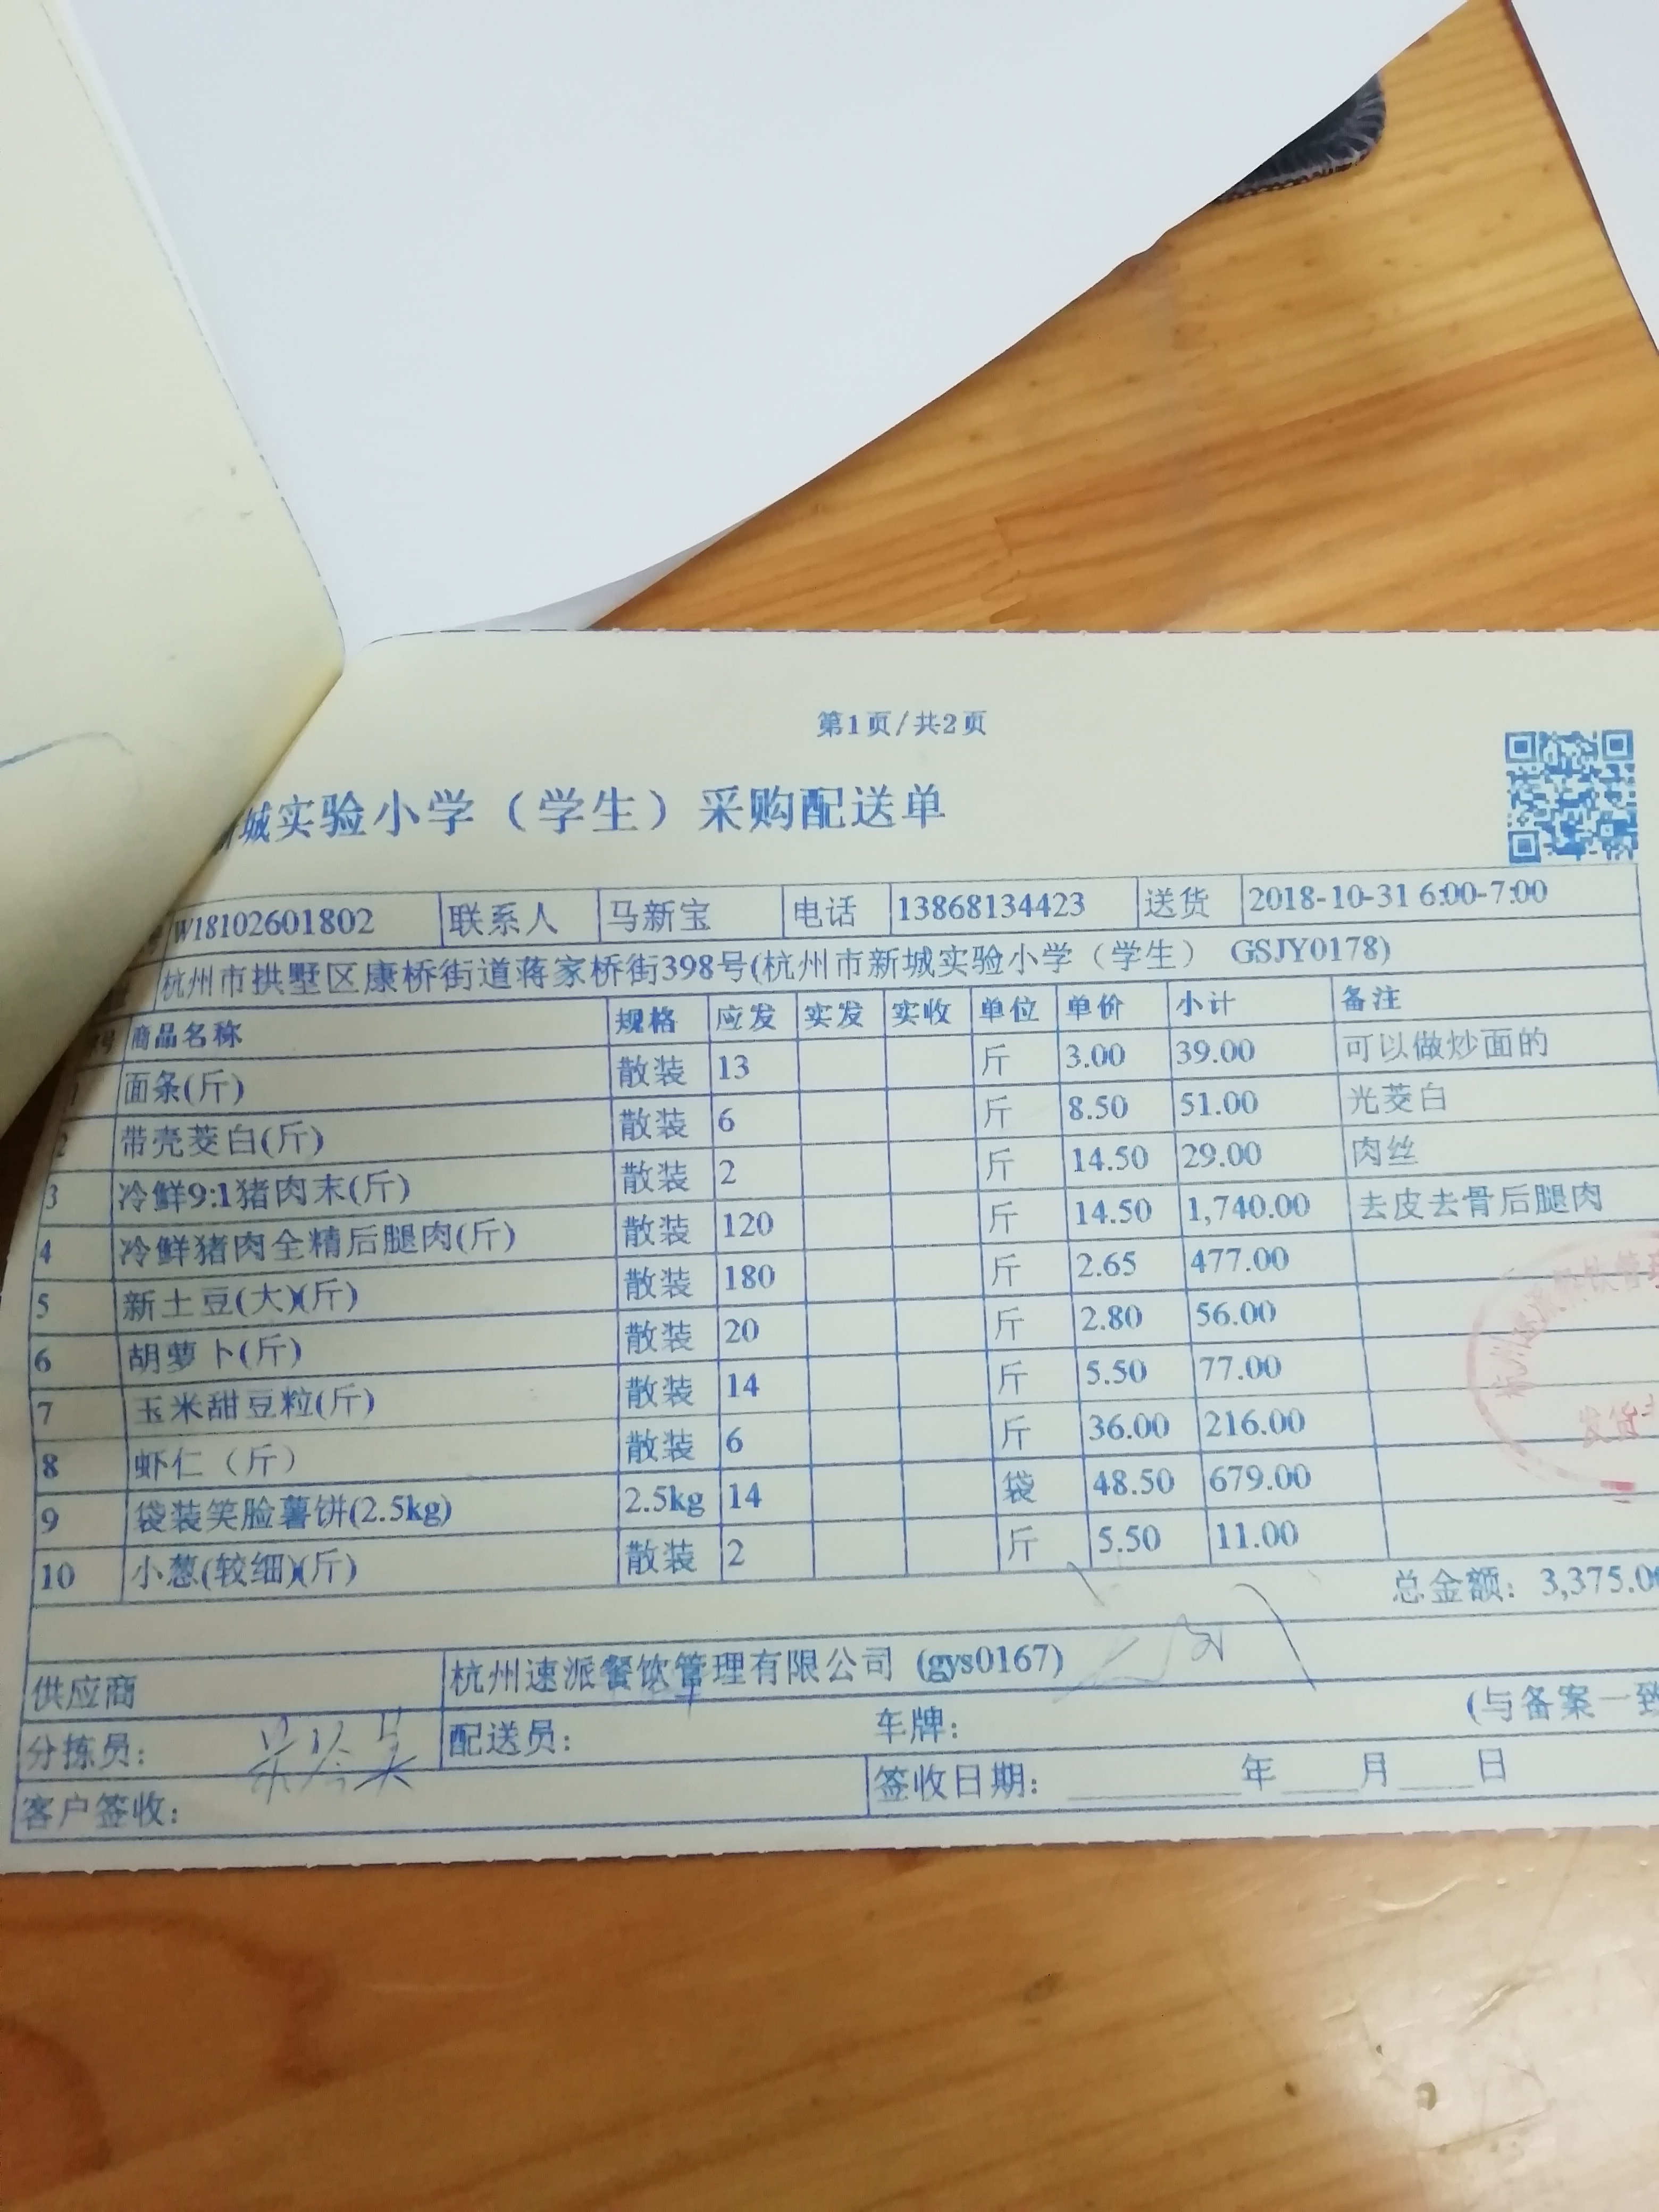 第1页/共2页
城实验小学（学生）采购配送单
W18102601802 联系人 马新宝 电话 13868134423 送货 2018-10-31 6:00-7:00
杭州市拱墅区康桥街道蒋家桥街398号(杭州市新城实验小学（学生） GSJY0178)
号 商品名称 规格 应发 实发 实收 单位 单价 小计 备注
1 面条(斤) 散装 13 斤 3.00 39.00 可以做炒面的
2 带壳茭白(斤) 散装 6 斤 8.50 51.00 光茭白
3 冷鲜9:1猪肉末(斤) 散装 2 斤 14.50 29.00 肉丝
4 冷鲜猪肉全精后腿肉(斤) 散装 120 斤 14.50 1,740.00 去皮去骨后腿肉
5 新土豆(大)(斤) 散装 180 斤 2.65 477.00
6 胡萝卜(斤) 散装 20 斤 2.80 56.00
7 玉米甜豆粒(斤) 散装 14 斤 5.50 77.00
8 虾仁（斤） 散装 6 斤 36.00 216.00
9 袋装笑脸薯饼(2.5kg) 2.5kg 14 袋 48.50 679.00
10 小葱(较细)(斤) 散装 2 斤 5.50 11.00
总金额：3,375.0
供应商 杭州速派餐饮管理有限公司 (gys0167)
分拣员： 配送员： 车牌： (与备案一致
客户签收： 签收日期： 年 月 日